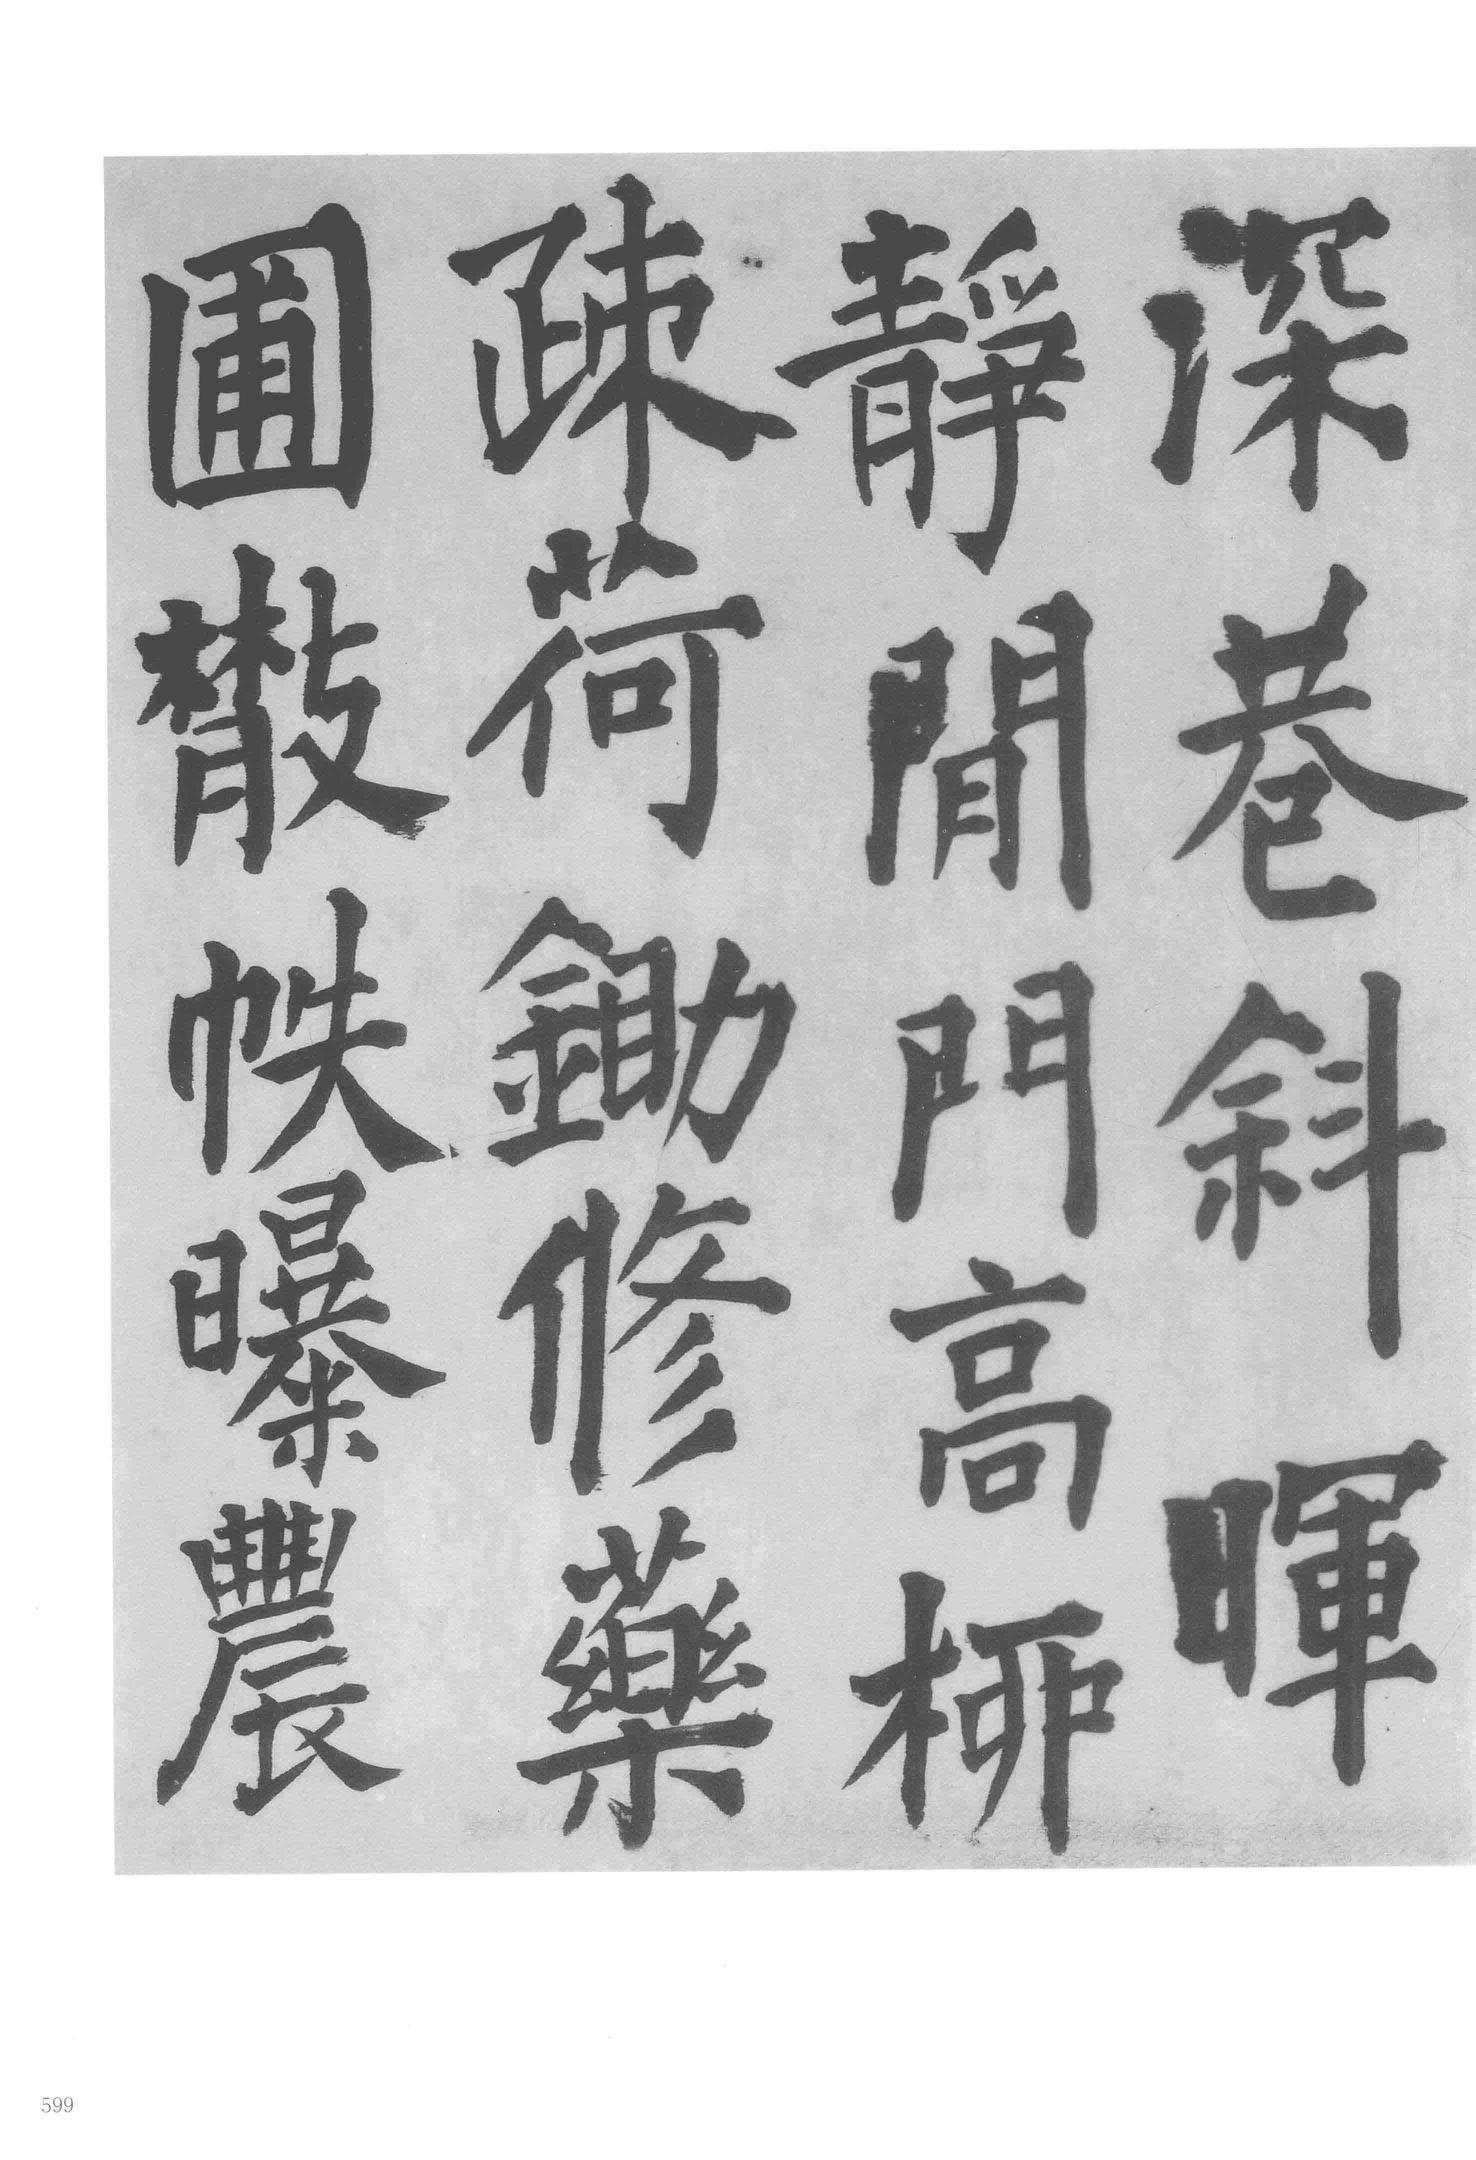 深巷斜暉
靜閒門高栁
疎荷鋤修藥
圃散帙曝農
599